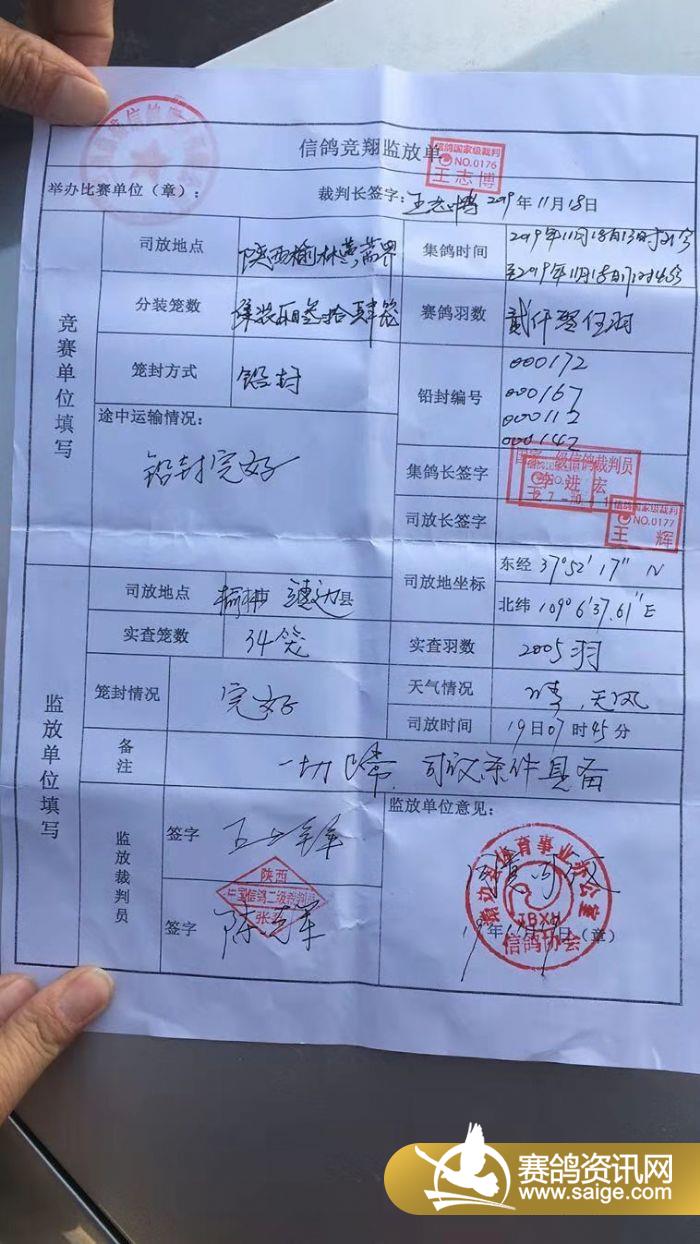 信鸽竞翔监放单
信鸽国家级裁判
NO.0176
王志博
举办比赛单位（章）：
裁判长签字：王志博 2019年11月18日
竞赛单位填写
司放地点
陕西榆林
集鸽时间
2019年11月18日13时
至2019年11月18日17时
分装笼数
赛鸽羽数
贰仟零伍羽
笼封方式
铅封
铅封编号
000172
000167
000112
000142
途中运输情况：
铅封完好
集鸽长签字
国家一级信鸽裁判员
李进宏
司放长签字
信鸽国家级裁判
NO.0177
王辉
监放单位填写
司放地点
榆林市 靖边县
司放地坐标
东经 37°52'17" N
北纬 109°6'37.61" E
实查笼数
34笼
实查羽数
2005羽
笼封情况
完好
天气情况
晴，无风
司放时间
19日07时45分
备注
一切正常，司放条件具备
监放裁判员
签字
陕西
中国信鸽二级裁判员
签字
监放单位意见：
同意司放
靖边县体育事业办公室
JBXH
信鸽协会
19年11月19日（章）
赛鸽资讯网
www.saige.com